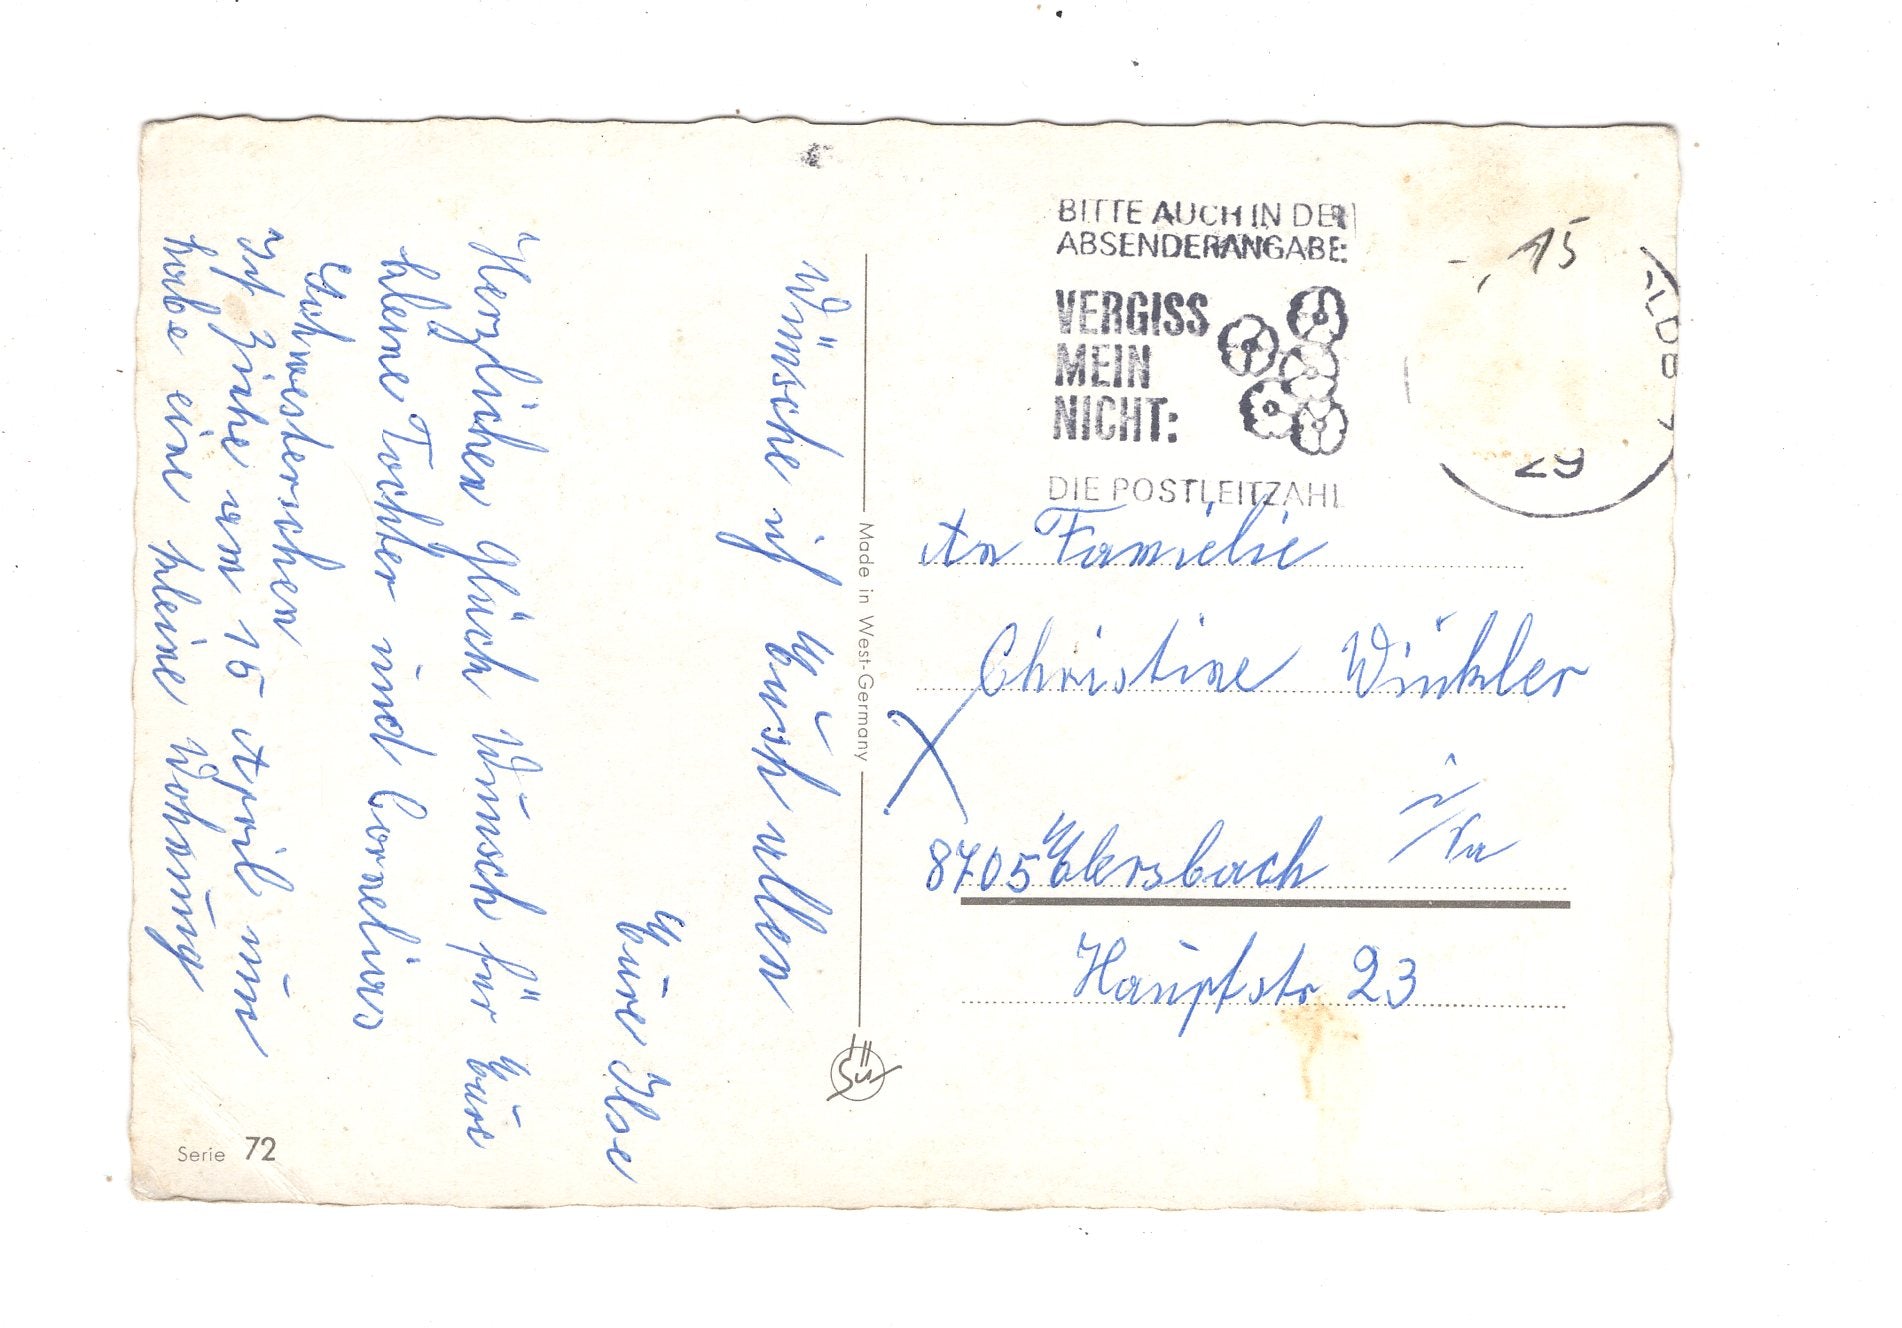 Wünsche ich Euch allen
Eure Ilse
Herzlichen Glück Wunsch für Eure
kleine Tochter und Cornelius
Schwesterschen
Ich ziehe am 15 April um
habe eine kleine Wohnung
Serie 72
Made in West-Germany
BITTE AUCH IN DER
ABSENDERANGABE:
VERGISS
MEIN
NICHT:
DIE POSTLEITZAHL
-,15
29
An Famielie
Christine Winkler
8705 Ebersbach i/Sa
Hauptstr 23